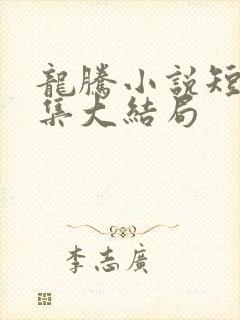 龍騰小說短
集大結局
李志廣